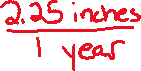 2.25 inches
1 year